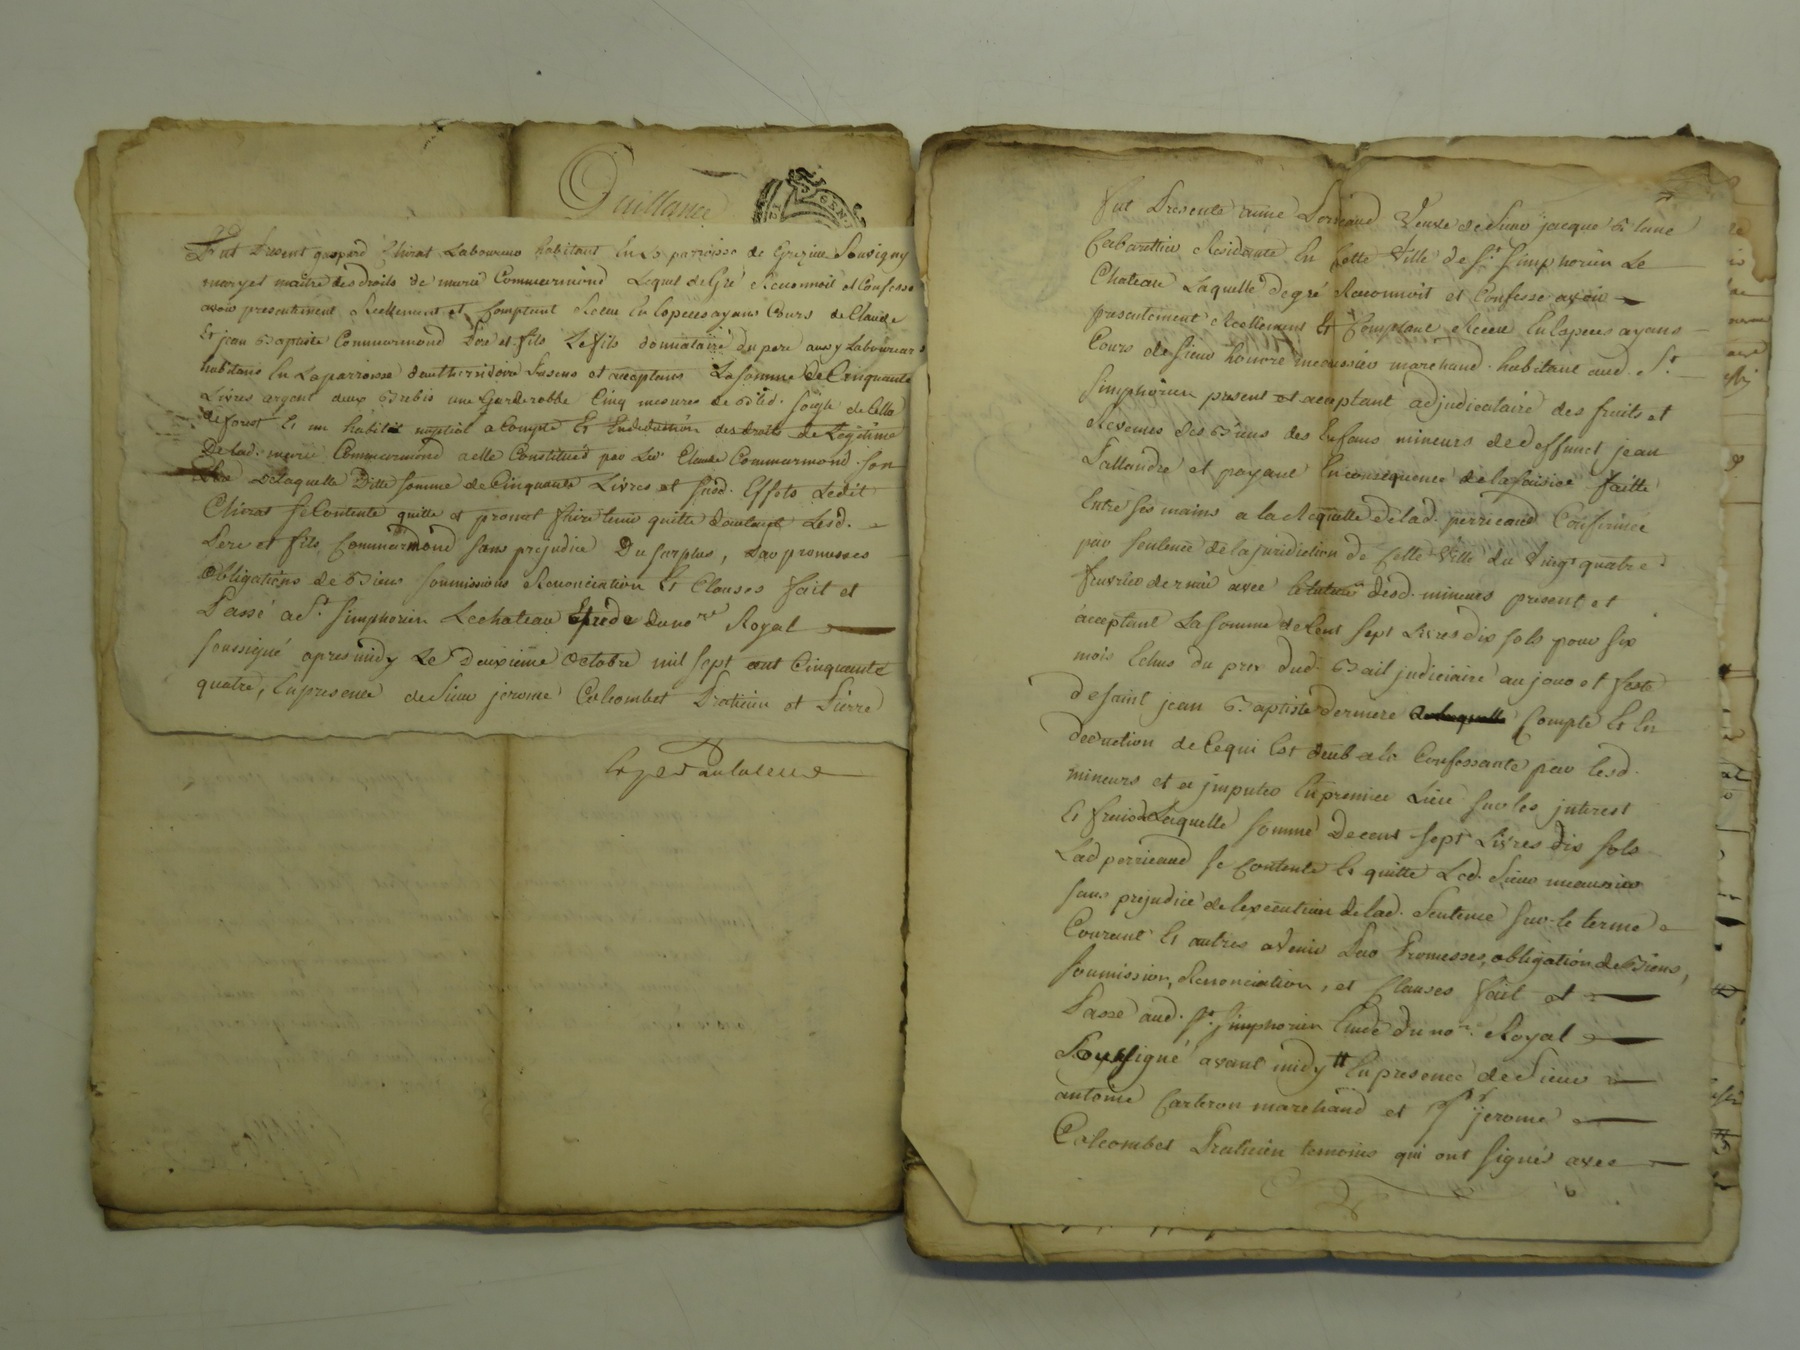 Quittance
GEN
Fut Present gaspard Chirat Laboureur habitant En La parroisse de Grezieu Souvigny
mary et maitre des droits de marie Commarmond Lequel de Gré Reconnoit et Confesse
avoir presentement Reellement et Comptant Receu En Especes ayans Cours de Claude
Et jean Baptiste Commarmond Pere et fils Le fils donnataire du pere aussy Laboureurs
habitans En La parroisse Presens et acceptans La somme De Cinquante
Livres argent deux Brebis une Garderobbe Cinq mesures de Bled Soigle de
de forest Et un habit nuptial a Compte Et En deduction des droits de Legitime
De lad. marie Commarmond a elle Constitués par Led. Claude Commarmond Son
Pere De Laquelle Ditte somme de Cinquante Livres et susd. Effets Ledit
Chirat se Contente quitte et promet faire tenir quitte d'autant Lesd.
Pere et fils Commarmond sans prejudice Du surplus, Par promesses
obligations de Biens soumissions Renonciation Et Clauses fait et
Passé a St. Simphorien Le chateau Etude du nore. Royal
soussigné apres midy Le Deuxieme Octobre mil sept cent Cinquante
quatre, En presence de Sieur jerome Colcombet Praticien et Pierre
Fut Presente Perricaud Veuve de Sieur jacque
Cabarettier Residente En Cette Ville de St. Simphorien Le
Chateau Laquelle de gré Reconnoit et Confesse avoir
presentement Reellement Et Comptant Receu En Especes ayans
Cours de Sieur marchand habitant aud. St.
Simphorien present et acceptant adjudicataire des fruits et
Revenus des Biens des Enfans mineurs de deffunct jean
et payant En consequence de la saisie faitte
Entre ses mains a la Requette de lad. perricaud Confirmée
par sentence de la juridiction de Cette Ville du Vingt quatre
fevrier dernier avec desd. mineurs present et
acceptant La somme de Cent sept Livres dix sols pour six
mois Echus du prix dud. Bail judiciaire au jour et feste
de saint jean Baptiste derniere Compte Et En
deduction de Ce qui Est deub a la Confessante par Lesd.
mineurs et a jmputer En premier Lieu sur les interest
Et frais De Laquelle somme De cent sept Livres dix sols
Lad perricaud se Contente Et quitte Led. Sieur
sans prejudice de l'execution de lad. Sentence sur le terme
Courant Et autres avenir Par Promesses, obligation de Biens,
soumission, Renonciation, et Clauses fait et
Passé aud. St. Simphorien Etude du nore. Royal
Soussigné avant midy En presence de Sieur
antoine Carteron marchand et Sr jerome
Colcombet Praticien temoins qui ont signés avec